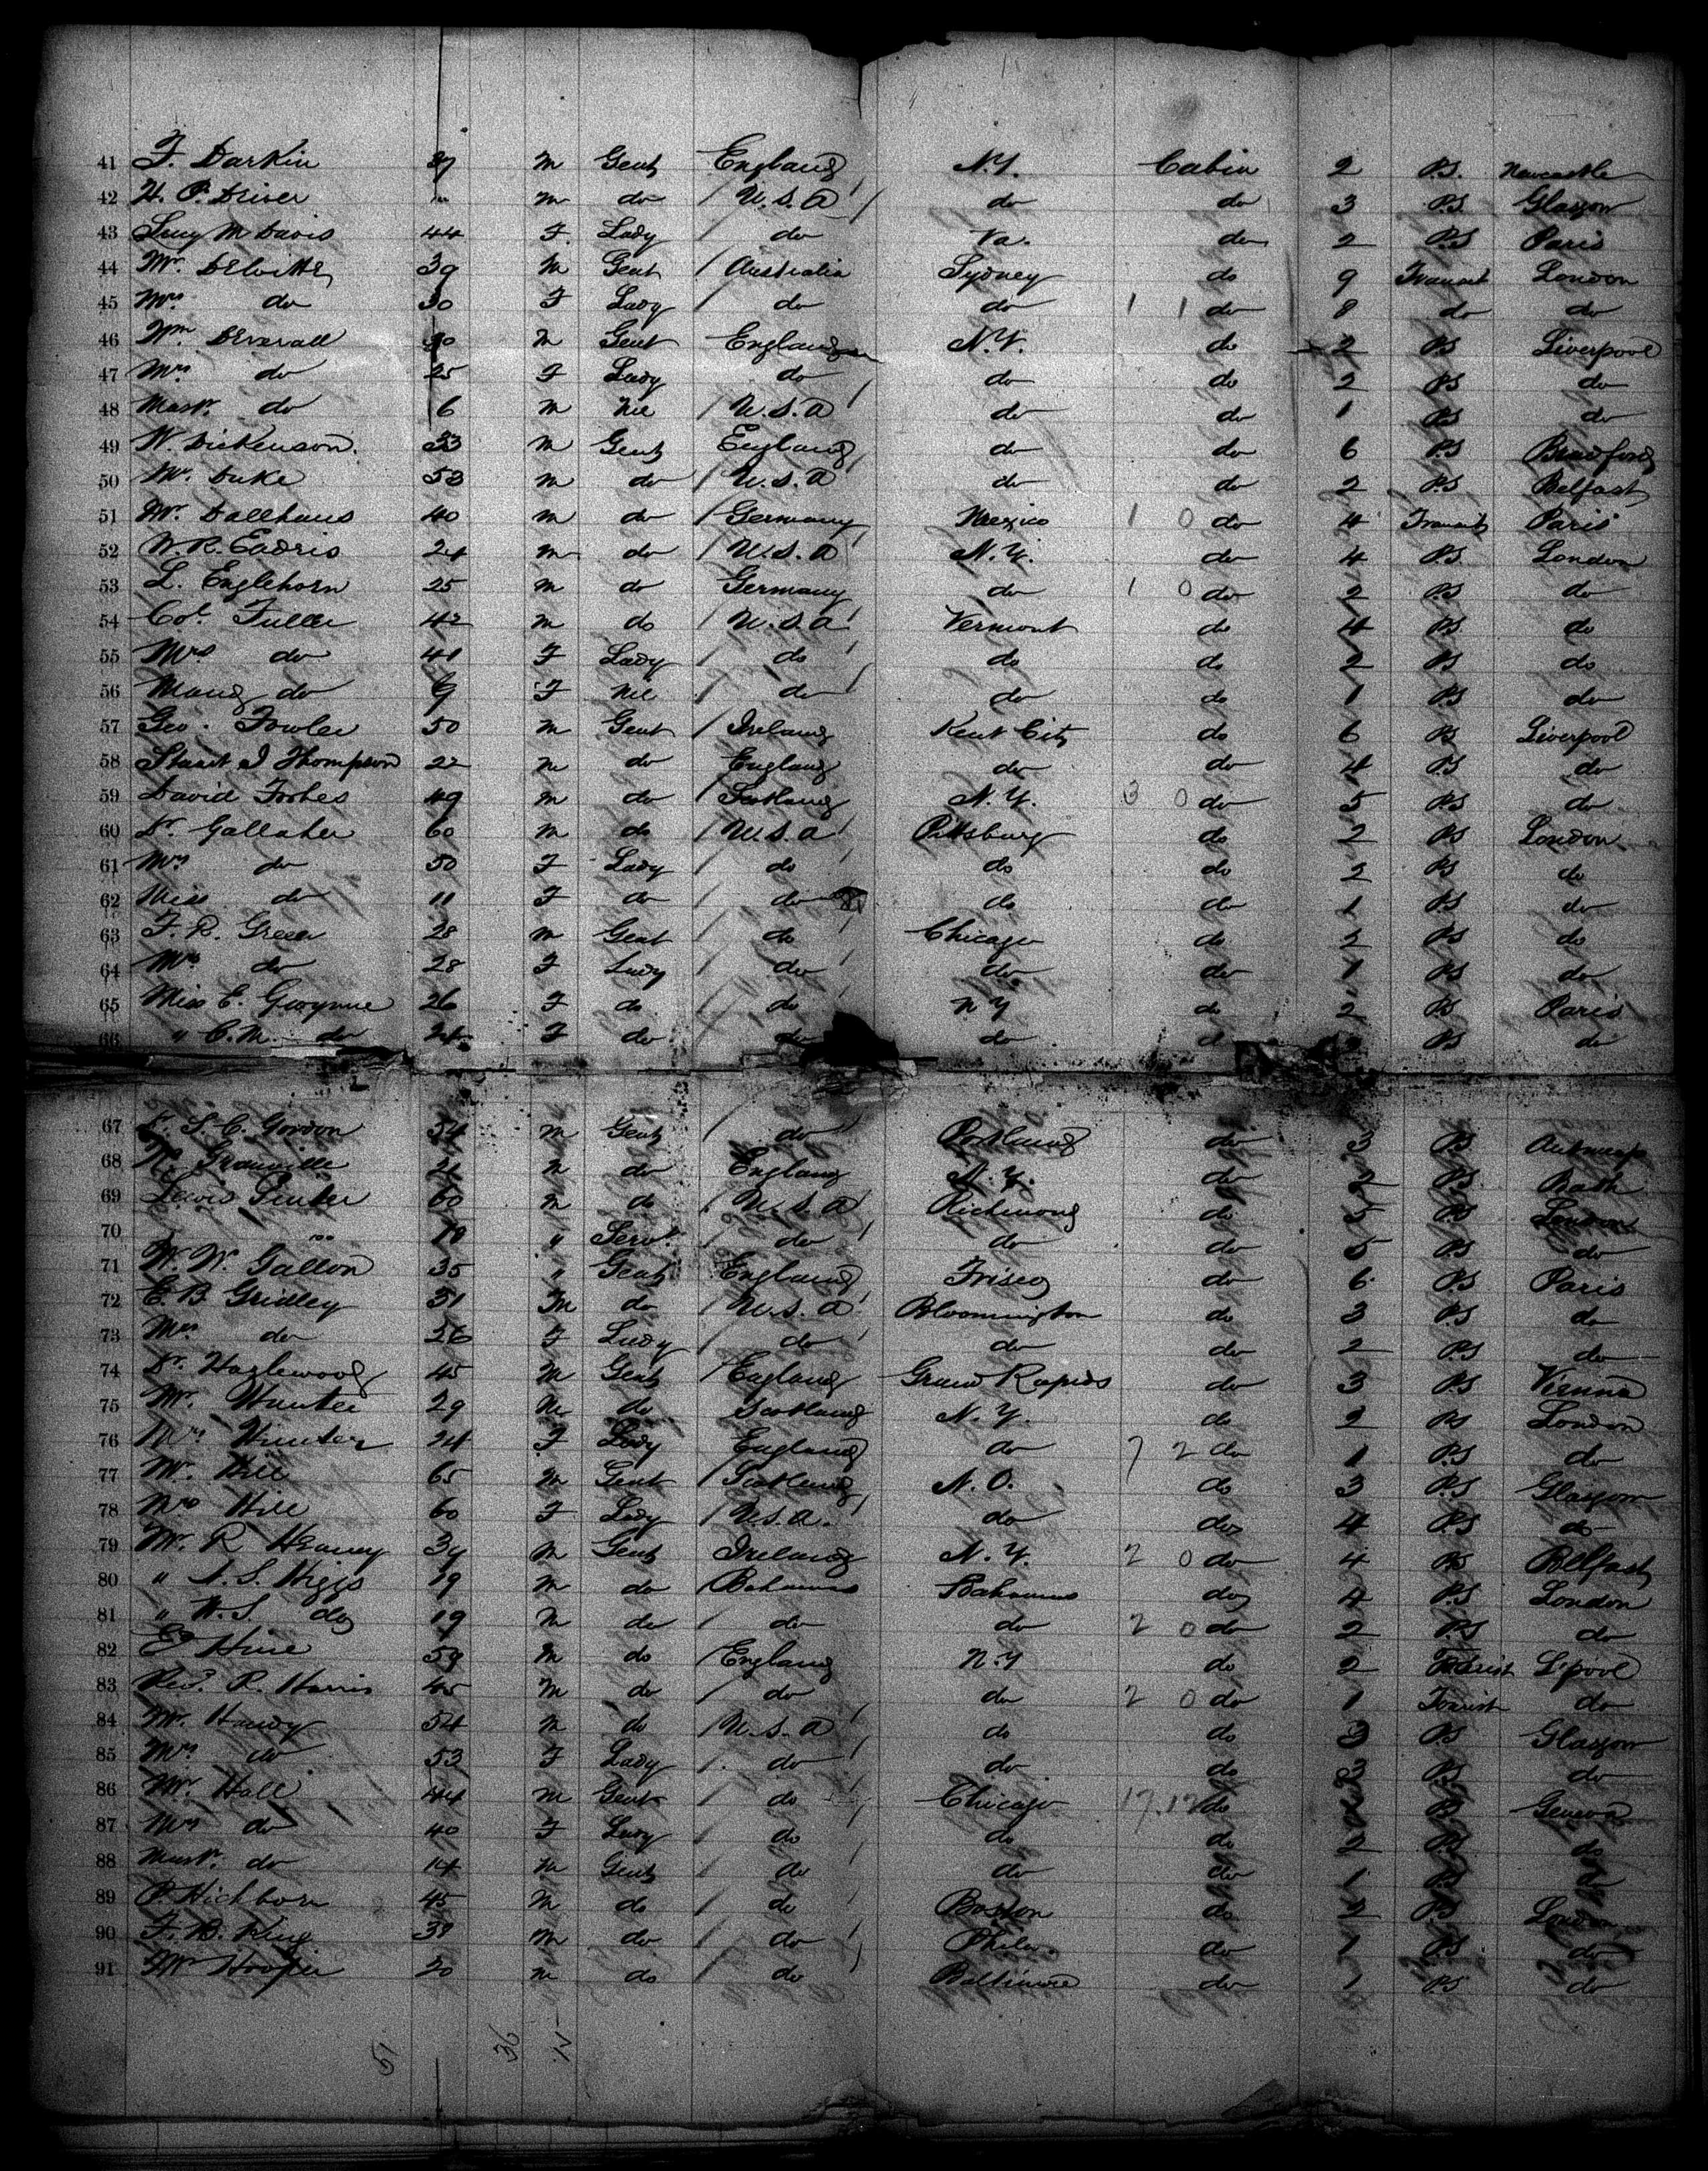 41 F. Darkin 37 M Gent England N.Y. Cabin 2 P.S. Newcastle
42 H. P. Driver M do U.S.A do do 3 P.S Glasgow
43 Lucy M Davis 44 F. Lady do Va. do 2 P.S Paris
44 Mr. 39 M Gent Australia Sydney do 9 Transit London
45 Mrs do 30 F Lady do do 1 1 do 8 do do
46 Wm Deverall 30 M Gent England N.Y. do 2 PS Liverpool
47 Mrs do 25 F Lady do do do 2 PS do
48 Mastr. do 6 M Nil U.S.A do do 1 PS do
49 W. Dickenson. 33 M Gent England do do 6 PS Bradford
50 Mr. Duke 53 M do U.S.A do do 2 P.S Belfast
51 Mr. Dallhaus 40 M do Germany Mexico 1 0 do 4 Transit Paris
52 W. R. Eadris 24 M do U.S.A N.Y. do 4 P.S London
53 L. Englehorn 25 M do Germany do 1 0 do 2 PS do
54 Col. Fuller 42 M do U.S.A Vermont do 4 PS do
55 Mrs do 41 F Lady do do do 2 PS do
56 Maud do 9 F Nil do do do 1 PS do
57 Geo. Fowler 50 M Gent Ireland Kent City do 6 PS Liverpool
58 Stuart I Thompson 22 M do England do do 4 P.S do
59 David Forbes 49 M do Scotland N.Y. 3 0 do 5 P.S do
60 Dr. Gallaher 60 M do U.S.A Pittsburg do 2 PS London
61 Mrs do 50 F Lady do do do 2 PS do
62 Miss do 11 F do do do do 1 PS do
63 F. R. Green 28 M Gent do Chicago do 2 PS do
64 Mrs do 28 F Lady do do do 1 PS do
65 Miss E. Gwynne 26 F do do N Y do 2 PS Paris
66 " C. M. do 24 F do do do PS do
67 Dr. S. C. Gordon 54 M Gent do Portland do 3 PS Antwerp
68 Granville 24 M do England N.Y. do 2 PS Bath
69 Lewis Ginter 60 M do U.S.A Richmond do 5 PS London
70 19 " Servt. do do do 5 PS do
71 W. W. Gallon 35 " Gent England Frisco do 6 P.S Paris
72 E. B Gridley 31 M do U.S.A Bloomington do 3 P.S do
73 Mrs do 26 F Lady do do do 2 P.S do
74 Dr. Hazlewood 45 M Gent England Grand Rapids do 3 P.S Vienna
75 Mr. Hunter 29 M do Scotland N.Y. do 2 PS London
76 Mrs Hunter 24 F Lady England do 7 2 do 1 P.S do
77 Mr. Hill 65 M Gent Scotland N.O. do 3 P.S Glasgow
78 Mrs Hill 60 F Lady U.S.A. do do 4 P.S do
79 Mr. R Heaney 34 M Gent Ireland N.Y. 2 0 do 4 PS Belfast
80 " A. S. Higgs 19 M do Bahamas Bahamas do 4 P.S London
81 " W. S. do 19 M do do do 2 0 do 2 P.S do
82 Ed Hine 59 M do England N.Y do 2 Tourist L'pool
83 Revd. R. Harris 45 M do do do 2 0 do 1 Tourist do
84 Mr. Hardy 54 M do U.S.A do do 3 PS Glasgow
85 Mrs do 53 F Lady do do do 3 PS do
86 Mr. Hall 44 M Gent do Chicago 17.12 do PS Geneva
87 Mrs do 40 F Lady do do do 2 PS do
88 Mastr. do 14 M Gent do do do 1 PS do
89 P. Hichborn 45 M do do Boston do 2 PS London
90 F. B. King 39 M do do Phila. do 1 PS do
91 Mr Hooper 20 M do do Baltimore do 1 PS do
51 36 15